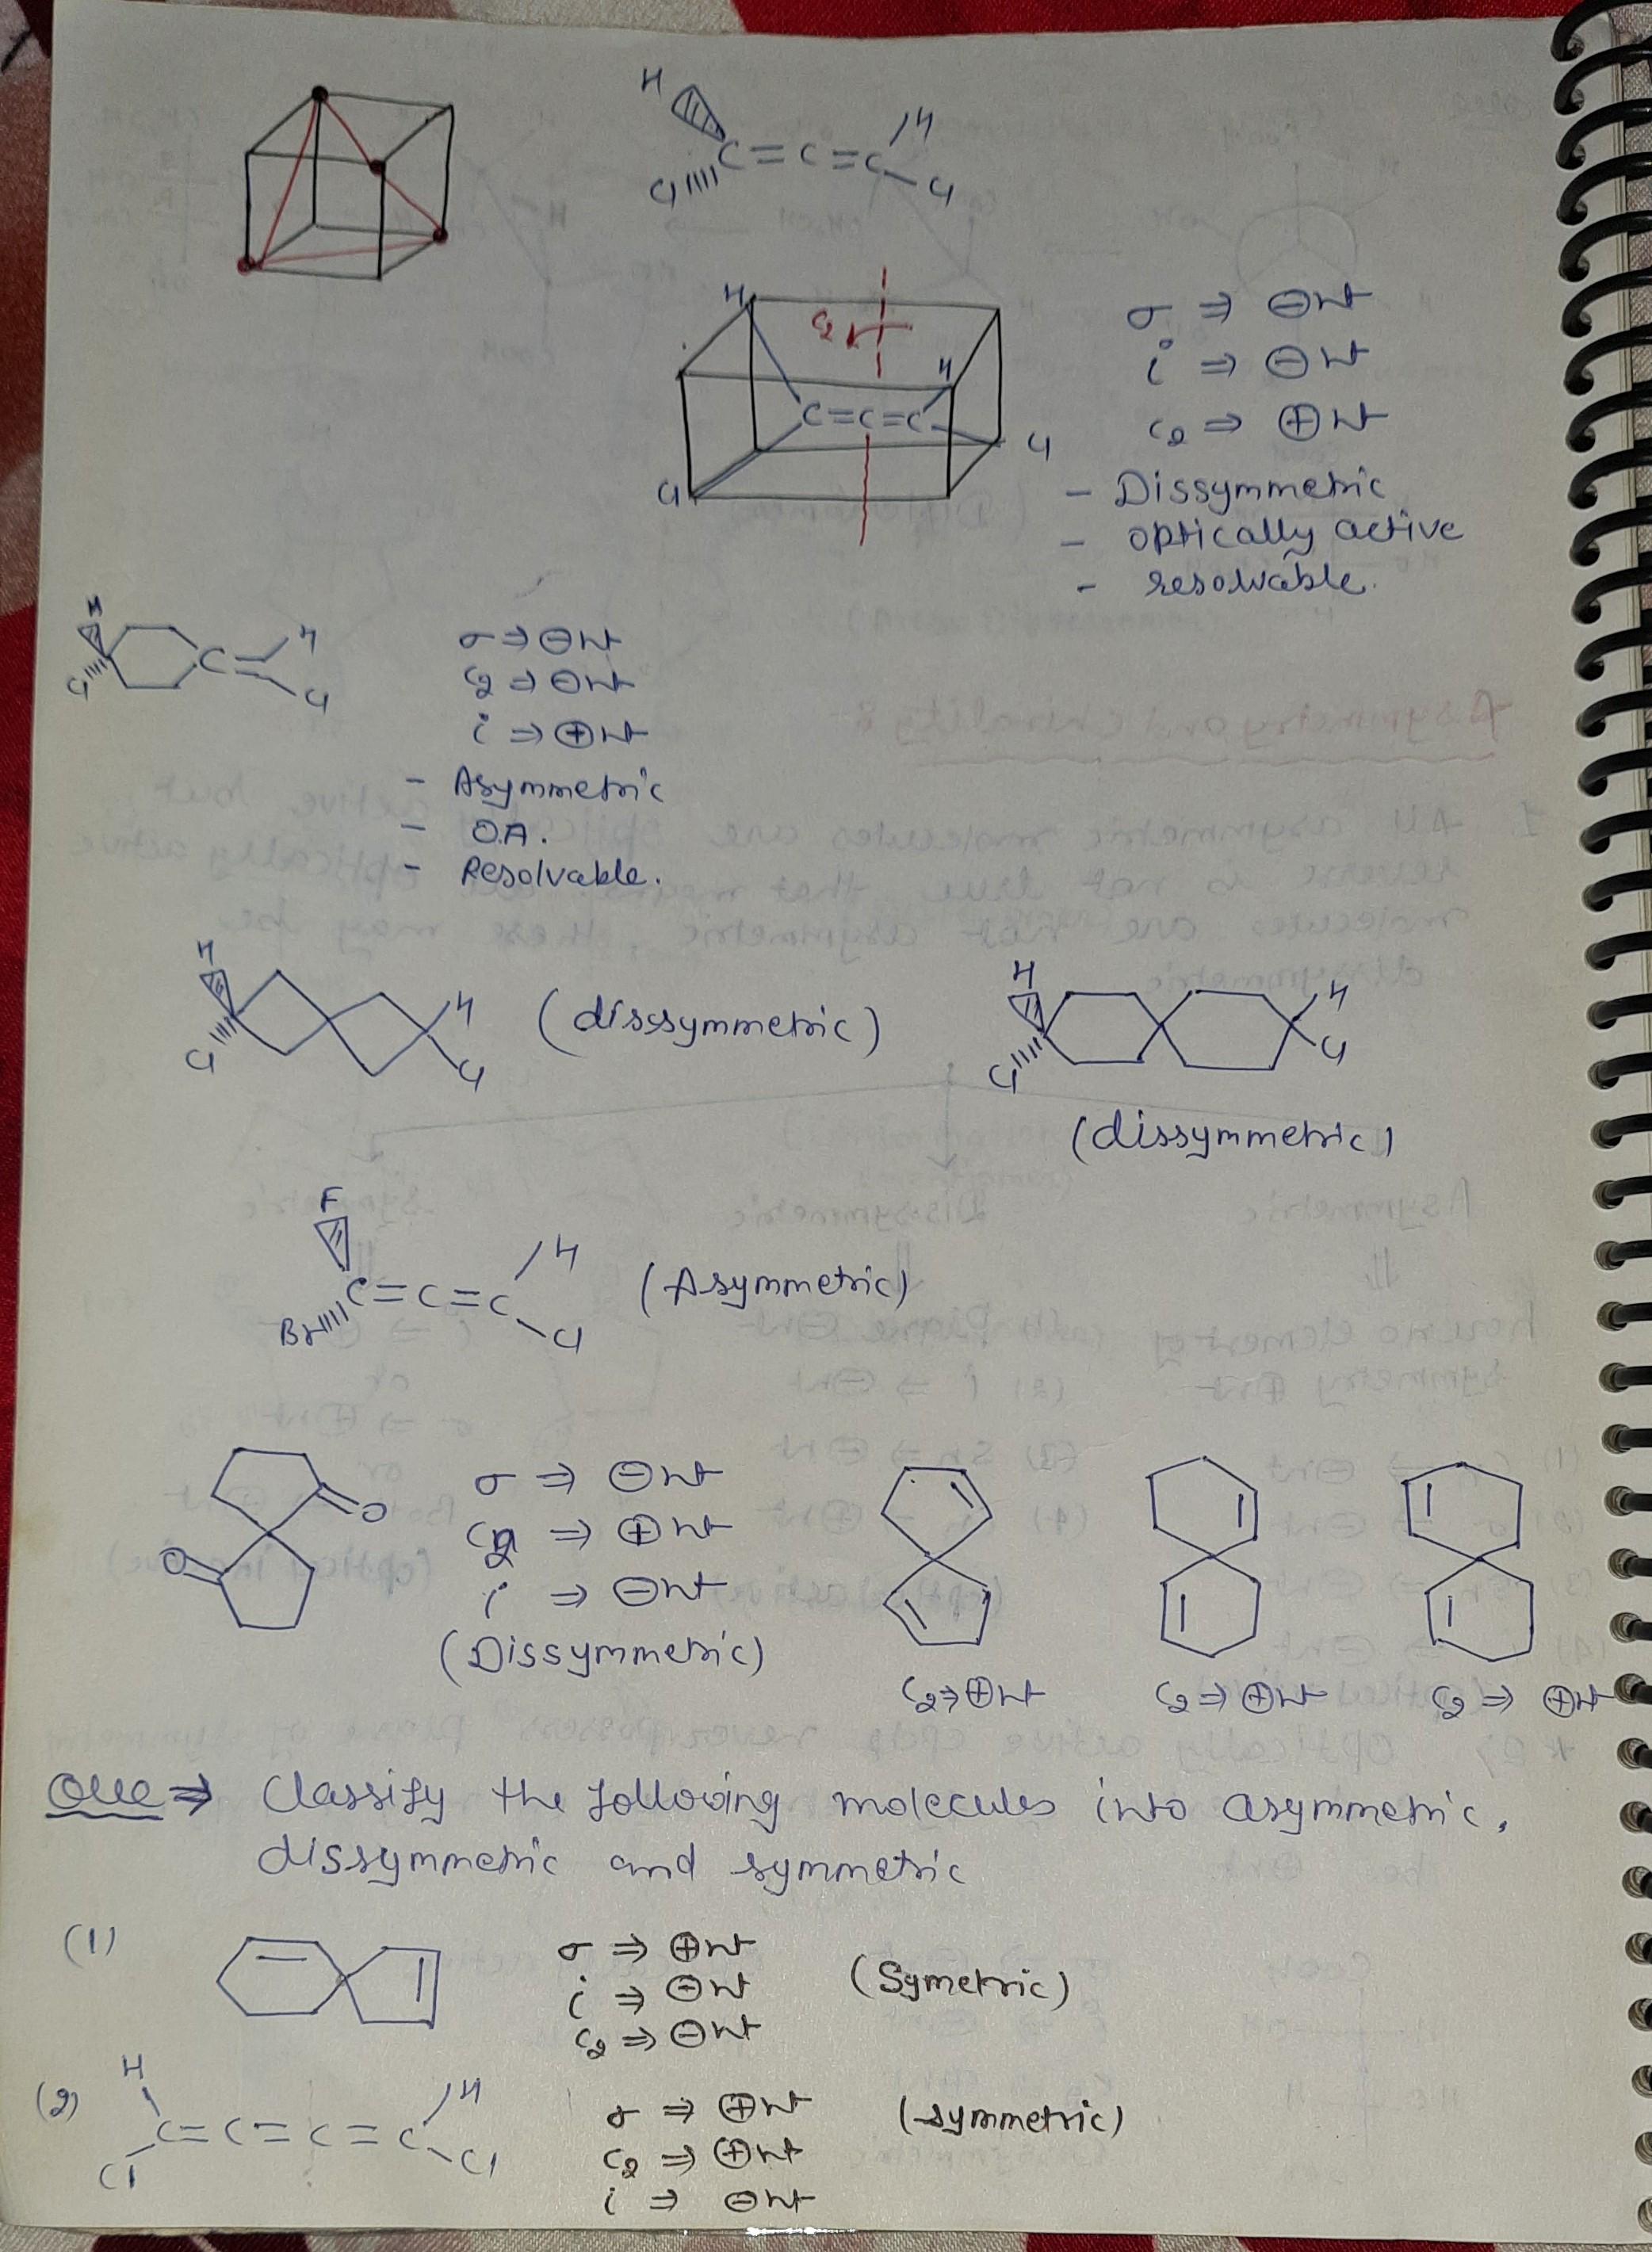 H
C=C=C
H
Cl
Cl
H
C2
H
C=C=C
Cl
Cl
σ ⇒ ⊖nt
i ⇒ ⊖nt
C2 ⇒ ⊕nt
- Dissymmetric
- optically active
- resolvable.
H
Cl
C
H
Cl
σ ⇒ ⊖nt
C2 ⇒ ⊖nt
i ⇒ ⊕nt
- Asymmetric
- O.A.
- Resolvable.
H
Cl
H
Cl
(disssymmetric)
H
Cl
H
Cl
(dissymmetric)
F
Br
C=C=C
H
Cl
(Asymmetric)
O
O
σ ⇒ ⊖nt
C2 ⇒ ⊕nt
i ⇒ ⊖nt
(Dissymmetric)
C2 ⇒ ⊕nt
C2 ⇒ ⊕nt
C2 ⇒ ⊕nt
Que ⇒ Classify the following molecules into asymmetric,
dissymmetric and symmetric
(1)
σ ⇒ ⊕nt
i ⇒ ⊖nt
C2 ⇒ ⊖nt
(Symetric)
(2)
H
Cl
C=C=C=C
H
Cl
σ ⇒ ⊕nt
C2 ⇒ ⊕nt
i ⇒ ⊖nt
(symmetric)